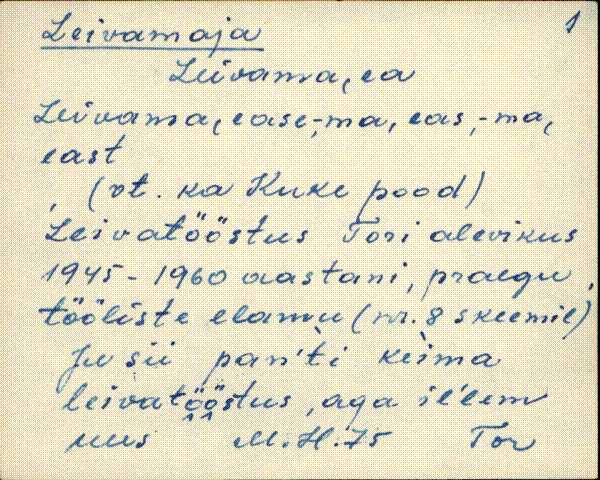 Leivamaja 1
Leivama, ea
Leivama, ease, -ma, eas, -ma,
east
(vt. ka Kuke pood)
Leivatööstus Tori alevikus
1945 - 1960 aastani, praegu
tööliste elamu (nr. 8 skeemil)
Ju sii pan'ti keima
leivatööstus, aga il'lem
uus M.H.75 Tor